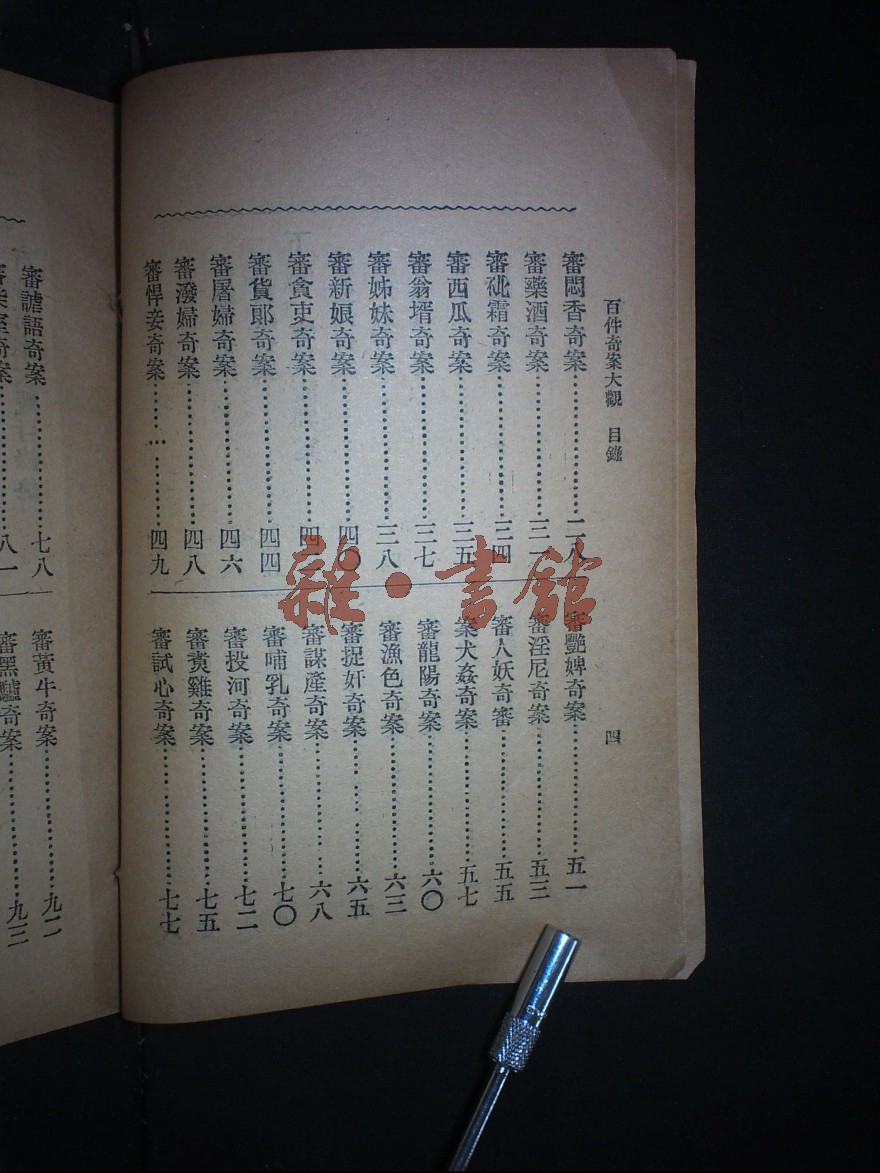 百件奇案大觀 目錄 四
審悶香奇案 二八
審藥酒奇案 三一
審砒霜奇案 三四
審西瓜奇案 三五
審翁壻奇案 三七
審姊妹奇案 三八
審新娘奇案 四〇
審貪吏奇案
審貨郎奇案 四四
審屠婦奇案 四六
審潑婦奇案 四八
審悍妾奇案 四九
審艷婢奇案 五一
審淫尼奇案 五三
審人妖奇審 五五
案犬姦奇案 五七
審龍陽奇案 六〇
審漁色奇案 六三
審捉奸奇案 六五
審謀產奇案 六八
審哺乳奇案 七〇
審投河奇案 七二
審賣雞奇案 七五
審試心奇案 七七
審謔語奇案 七八
奇案 八一
審黃牛奇案 九二
審黑驢奇案 九三
雜·書館